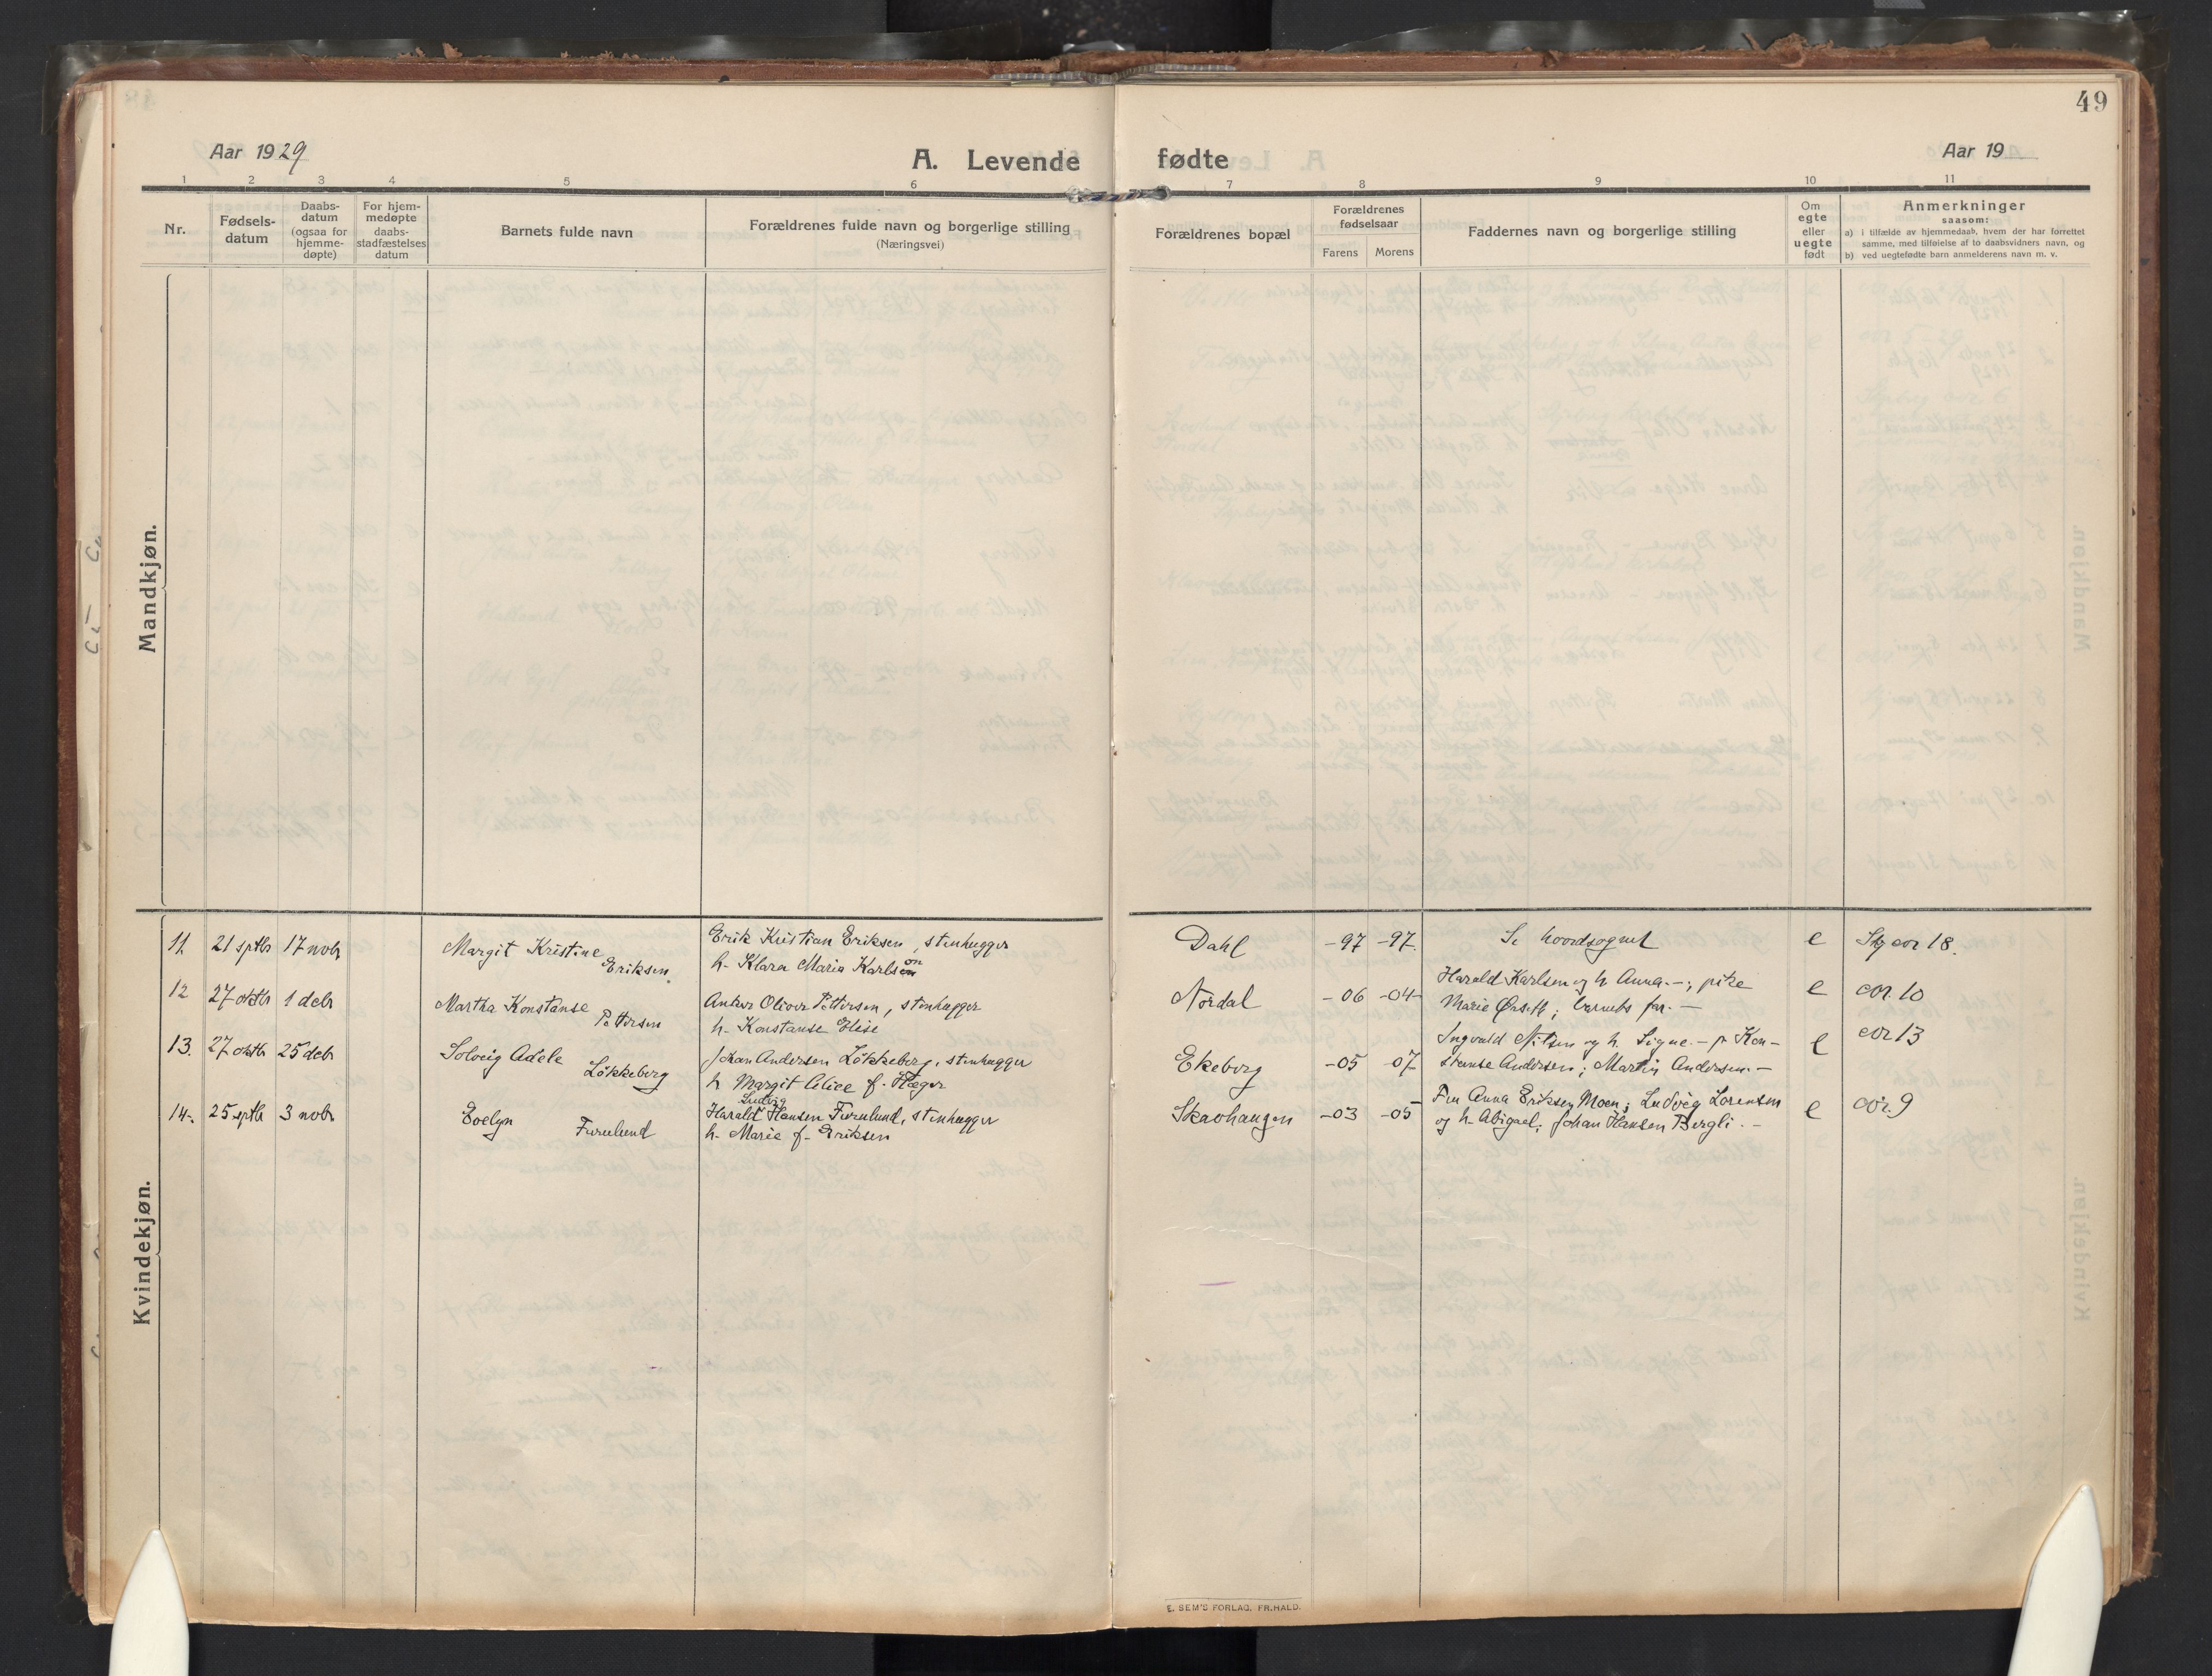 49
Aar 1929
A. Levende fødte
Aar 19
1 2 3 4 5 6 7 8 9 10 11
Nr.
Fødsels-
datum
Daabs-
datum
(ogsaa for
hjemme-
døpte)
For hjem-
medøpte
daabs-
stadfæstelses
datum
Barnets fulde navn
Forældrenes fulde navn og borgerlige stilling
(Næringsvei)
Forældrenes bopæl
Forældrenes
fødselsaar
Farens Morens
Faddernes navn og borgerlige stilling
Om
egte
eller
uegte
født
Anmerkninger
saasom:
a) i tilfælde av hjemmedaab, hvem der har forrettet
samme, med tilføielse af to daabsvidners navn, og
b) ved uegtefødte barn anmelderens navn m. v.
Mandkjøn.
Kvindekjøn.
11 21 sptbr 17 novbr Margit Kristine
Eriksen
Erik Kristian Eriksen, stenhugger
h. Klara Maria Karlson
Dahl -97 -97 Se hovedsognet e Skj cor 18.
12 27 oktbr 1 debr Martha Konstanse
Pettersen
Anker Oliver Pettersen, stenhugger
h. Konstanse Elise
Nordal -06 -04 Harald Karlsen og h. Anna -; pike
Marie ; barnets far. -
e cor. 10
13. 27 oktbr 25 debr Solveig Adele
Løkkeberg
Johan Andersen Løkkeberg, stenhugger
h Margit Alice f. Hæger
Ekeberg -05 -07 Ingvald Nilsen og h. Signe. - p Kon-
stanse Andersen; Martin Andersen. -
e cor 13
14. 25 sptbr 3 novbr Evelyn
Furulund
Ludvig
Harald Hansen Furulund, stenhugger
h. Marie f. Eriksen
Skavhaugen -03 -05 Fru Anna Eriksen Moen; Ludvig Lorensen
og h. Abigael; Johan Hansen Bergli. -
e cor. 9
E. SEM'S FORLAG, FR.HALD.